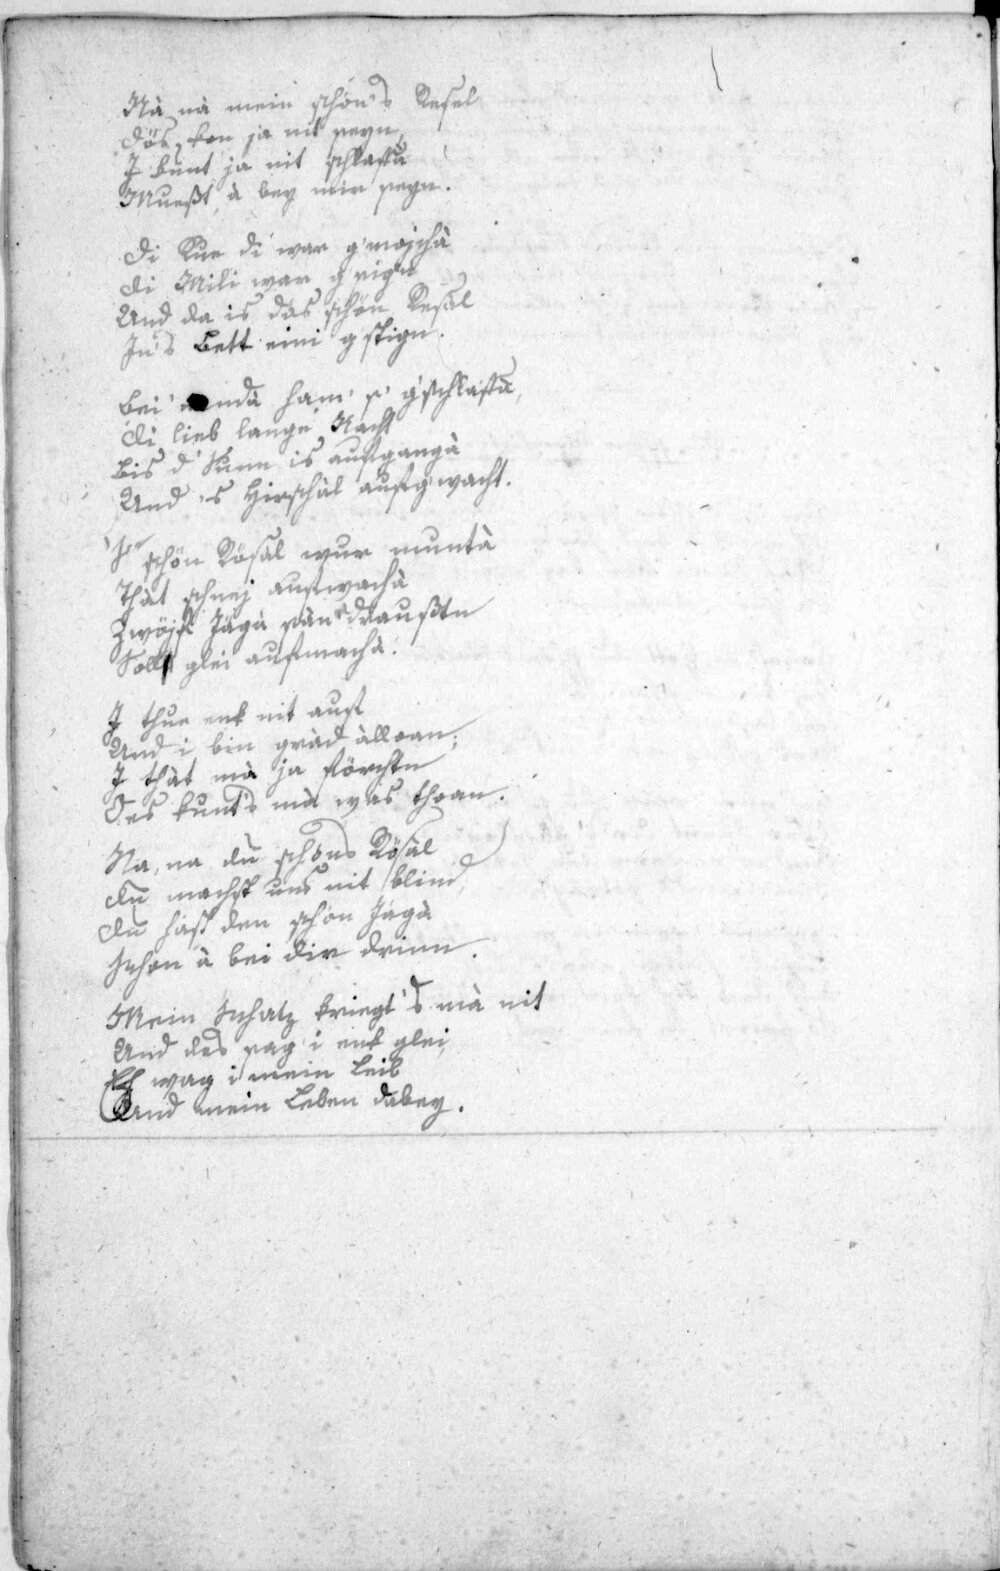 Nà nà mein schön's Resel
Dös kon ja nit seyn,
I kunt ja nit schlaffà
Mueßt à bey mir seyn.

Di Kue di war g'mojchà
Di Mili war g'sign
Und da is das schön Resàl
In's Bett eini g'stign.

Bei' nandà ham' s' g'schlaffà,
Di lieb lange Nacht
Bis d' Sunn is aufgangà
Und 's Hirschàl aufg'wacht.

's schön Rösàl wur muntà
Thàt schnej aufwachà
Zwöjf Jàgà sàn draußtn
Soll glei aufmachà.

I thue enk nit auf
Und i bin gràd àlloan;
I thàt mà ja förchtn
Oes kunt's mà was thoan.

Na, na du schöns Rösàl
Du machst uns nit blind,
Du hast den schön Jàgà
Schon à bei dir drinn.

Mein Schatz kriegt's mà nit
Und des sag i enk glei,
Eh wag i mein Leib
Und mein Leben dabey.